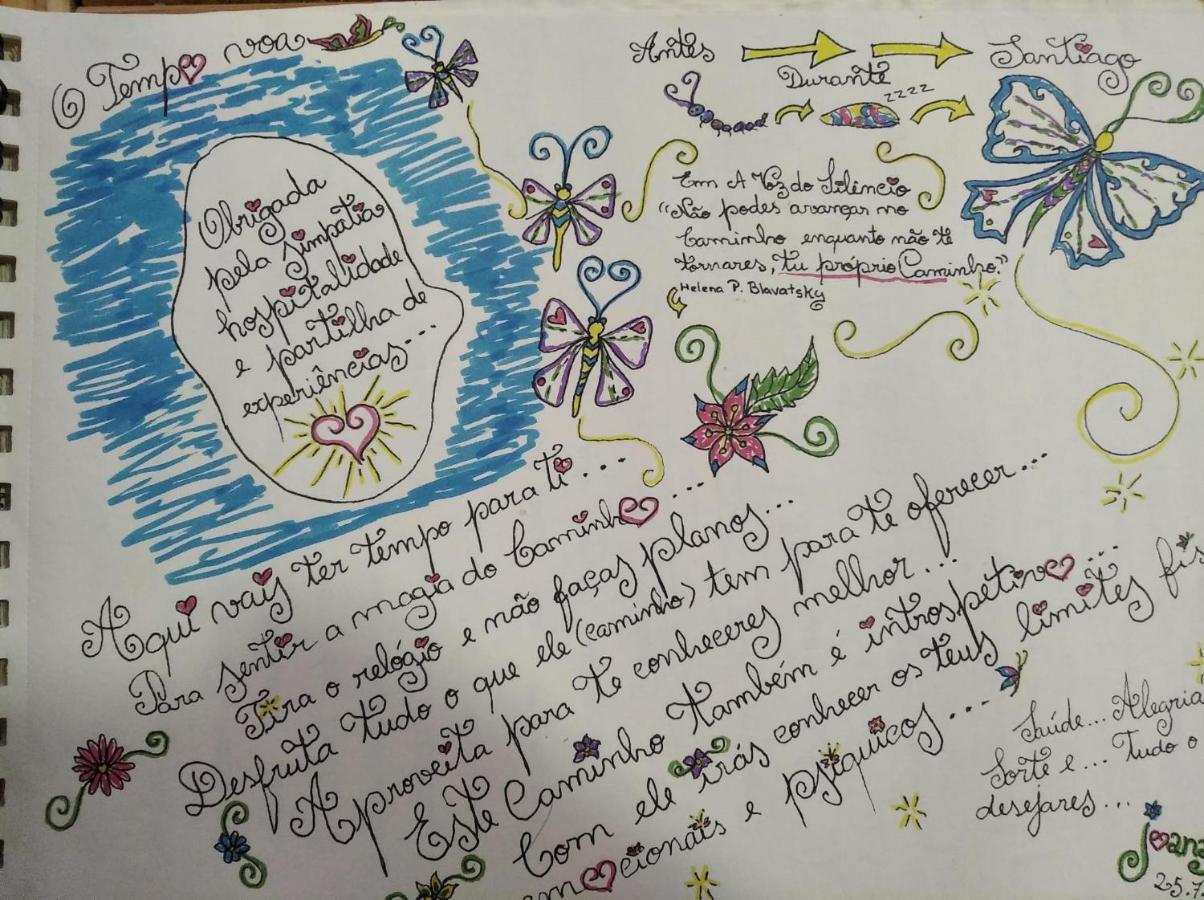 O Tempo voa
Obrigada
pela simpatia
hospitalidade
e partilha de
experiências...
Antes
Durante
Santiago
zzzz
Em A Voz do Silêncio
"Não podes avançar no
Caminho enquanto não te
tornares, tu próprio Caminho."
Helena P. Blavatsky
Aqui vais ter tempo para ti...
Para sentir a magia do Caminho...
Tira o relógio e não faças planos...
Desfruta tudo o que ele (caminho) tem para te oferecer...
Aproveita para te conheceres melhor...
Este Caminho também é introspetivo...
Com ele irás conhecer os teus limites
emocionais e psíquicos...
Saúde... Alegria
Sorte e... Tudo o
desejares...
Joana
25.7